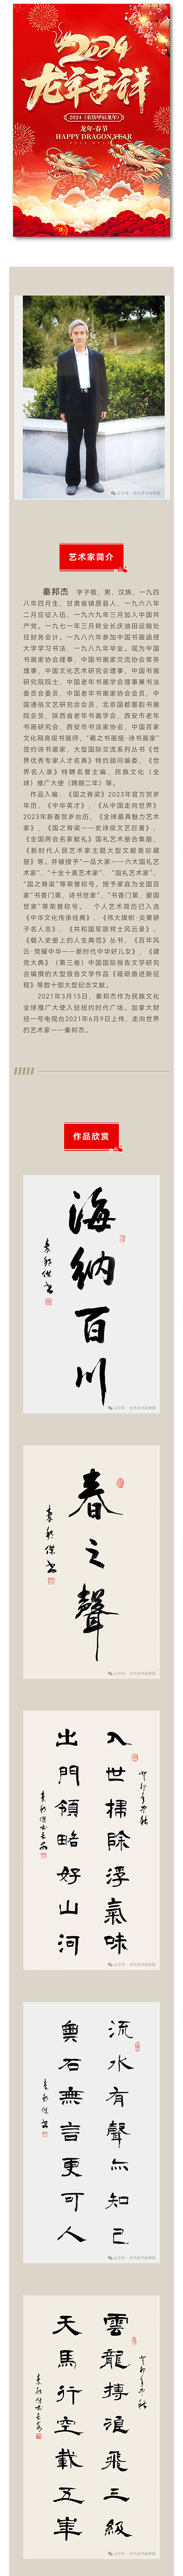 2024
龙年吉祥
2024（农历甲辰龙年）
龙年·春节
HAPPY DRAGON YEAR
艺术家简介
秦邦杰 字子敬，男，汉族，一九四
八年四月生，甘肃省镇原县人，一九六八年
二月应征入伍，一九六九年三月加入中国共
产党。一九七一年三月转业长庆油田运输处
任财务会计。一九八六年参加中国书画函授
大学学习书法，一九八九年毕业。现为中国
书画家协会理事、中国书画家交流协会常务
理事，中国文化艺术研究会理事，中国书画
研究院院士，中国老年书画学会理事兼书法
委员会委员，中国老年书画家协会会员，中国
通俗文艺研究会会员，北京国都墨韵书画
院会员，陕西省老年书画学会，西安市老年
书画研究会，西安市书法家协会，中国百家
文化网高级书画师，“羲之书画报·诗书画家”
签约诗书画家，大型国际交流系列丛书《世
界优秀专家人才名典》特约顾问编委，《世
界名人录》特聘名誉主编、民族文化（全
球）推广大使（聘期二年）等。
作品入编：《国之脊梁》2023年官方贺岁
年历，《中华英才》，《从中国走向世界》
2023年新春贺岁台历，《全球最具魅力艺术
家》，《国之脊梁——史诗级文艺巨著》，
《全国两会名家献礼》国礼艺术册合集版，
《新时代人民艺术家主题大型文献集珍藏
册》等。并被授予“一品大家——六大国礼艺
术家”、“十全十美艺术家”、“国礼艺术家”、
“国之脊梁”等荣誉称号。授予家庭为全国百
家“书香门第、诗书世家”、“书香门第、爱国
世家”等荣誉称号。 个人艺术简历已入选
《中华文化传承经典》、《伟大旗帜·炎黄骄
子名人志》、《共和国军旅将士风云录》、
《载入史册上的人生典范》丛书、《百年风
云·党耀中华——新时代中华好儿女》、《建
党大典》（第三卷）中国国际报告文学研究
会编撰的大型报告文学作品《砥砺奋进新征
程》等数十部大型纪念文献。
2021年3月15日，秦邦杰作为民族文化
全球推广大使入驻纽约时代广场。加拿大财
经一号电视台2021年6月9日上传，走向世界
的艺术家——秦邦杰。
作品欣赏
海纳百川
秦邦傑书
春之聲
秦邦傑书
入世掃除浮氣味
出門領略好山河
流水有聲亦知己
輿石無言更可人
秦邦傑书
雲龍搏浪飛三級
天馬行空載五車